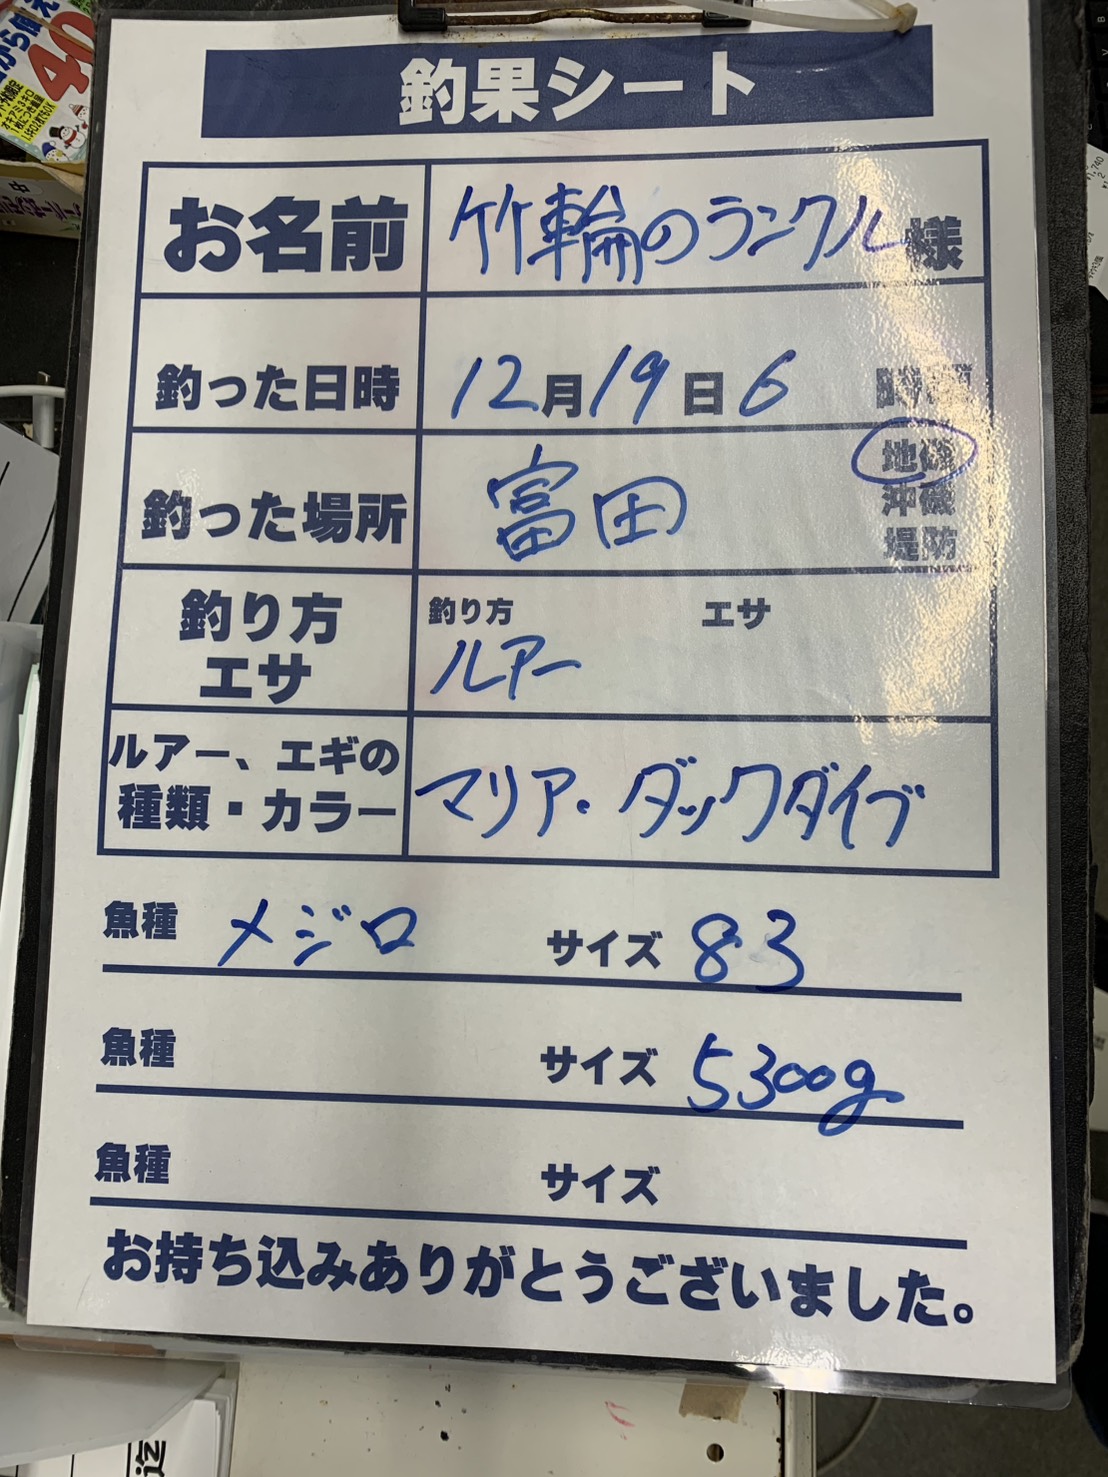 釣果シート
お名前 竹輪のランクル 様
釣った日時 12月19日6 時頃
釣った場所 富田 地磯
沖磯
堤防
釣り方
エサ
釣り方 エサ
ルアー
ルアー、エギの
種類・カラー
マリア・ダックダイブ
魚種 メジロ サイズ 83
魚種 サイズ 5300g
魚種 サイズ
お持ち込みありがとうございました。
40